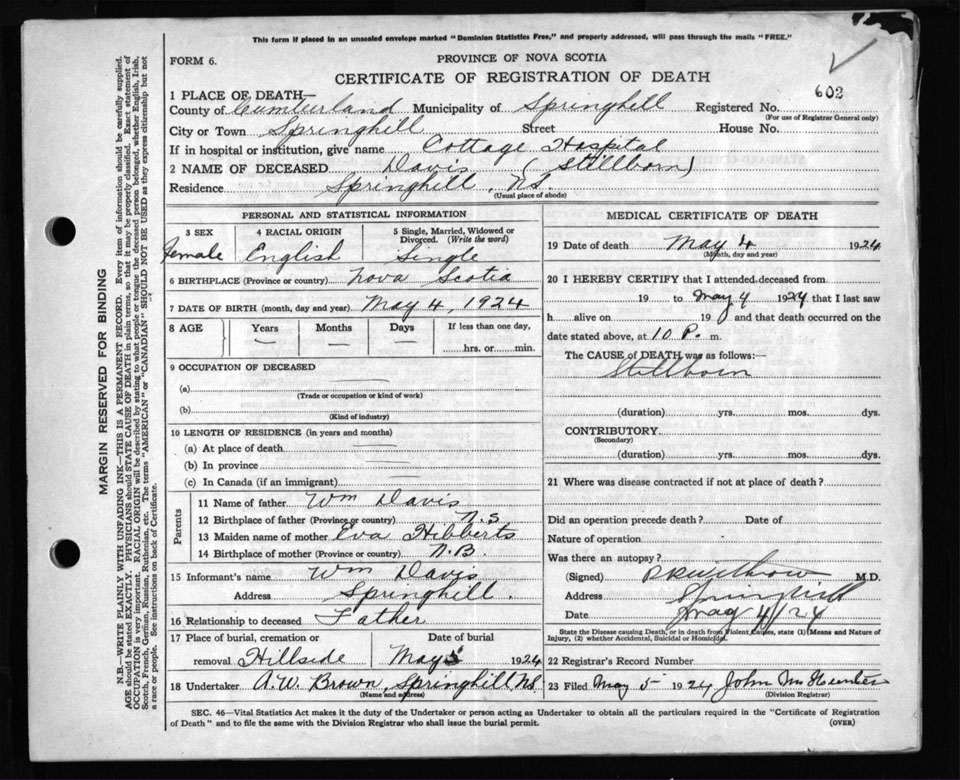 This form if placed in an unsealed envelope marked "Dominion Statistics Free," and properly addressed, will pass through the mails "FREE."
FORM 6.
PROVINCE OF NOVA SCOTIA
CERTIFICATE OF REGISTRATION OF DEATH
603
1 PLACE OF DEATH—
County of Cumberland Municipality of Springhill Registered No.
(For use of Registrar General only)
City or Town Springhill Street House No.
If in hospital or institution, give name Cottage Hospital
2 NAME OF DECEASED Davis (Stillborn)
Residence Springhill, N.S.
(Usual place of abode)
PERSONAL AND STATISTICAL INFORMATION
3 SEX 4 RACIAL ORIGIN 5 Single, Married, Widowed or Divorced. (Write the word)
Female English Single
6 BIRTHPLACE (Province or country) Nova Scotia
7 DATE OF BIRTH (month, day and year) May 4, 1924
8 AGE Years Months Days If less than one day,
hrs. or min.
9 OCCUPATION OF DECEASED
(a)
(Trade or occupation or kind of work)
(b)
(Kind of industry)
10 LENGTH OF RESIDENCE (in years and months)
(a) At place of death
(b) In province
(c) In Canada (if an immigrant)
Parents
11 Name of father Wm Davis
12 Birthplace of father (Province or country) N.S
13 Maiden name of mother Eva Hibberts
14 Birthplace of mother (Province or country) N.B.
15 Informant's name Wm Davis
Address Springhill.
16 Relationship to deceased Father
17 Place of burial, cremation or Date of burial
removal Hillside May 5 1924
18 Undertaker A.W. Brown, Springhill NS
(Name and address)
MEDICAL CERTIFICATE OF DEATH
19 Date of death May 4 1924
(Month, day and year)
20 I HEREBY CERTIFY that I attended deceased from
19 to May 4 1924 that I last saw
h alive on 19 and that death occurred on
date stated above, at 10 P. m.
The CAUSE of DEATH was as follows:—
Stillborn
(duration) yrs. mos. dys.
CONTRIBUTORY
(Secondary)
(duration) yrs. mos. dys.
21 Where was disease contracted if not at place of death?
Did an operation precede death? Date of
Nature of operation
Was there an autopsy?
(Signed) M.D.
Address Springhill
Date May 4/24
State the Disease causing Death, or in death from Violent Causes, state (1) Means and Nature of
Injury, (2) whether Accidental, Suicidal or Homicidal.
22 Registrar's Record Number
23 Filed May 5 1924 John
(Division Registrar)
SEC. 46—Vital Statistics Act makes it the duty of the Undertaker or person acting as Undertaker to obtain all the particulars required in the "Certificate of Registration
of Death" and to file the same with the Division Registrar who shall issue the burial permit. (OVER)
MARGIN RESERVED FOR BINDING
N.B.—WRITE PLAINLY WITH UNFADING INK—THIS IS A PERMANENT RECORD. Every item of information should be carefully supplied.
AGE should be stated EXACTLY. PHYSICIANS should STATE CAUSE OF DEATH in plain terms, so that it may be properly classified. Exact statement of
OCCUPATION is very important. RACIAL ORIGIN will be described by stating to what people or tongue the deceased person belonged, whether English, Irish,
Scotch, French, German, Russian, Ruthenian, etc. The terms "AMERICAN" or "CANADIAN" SHOULD NOT BE USED as they express citizenship but not
a race or people. See instructions on back of Certificate.